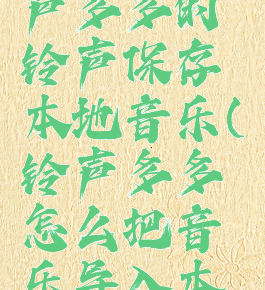 声多多的
铃声保存
本地音乐(
铃声多多
怎么把音
乐导入本